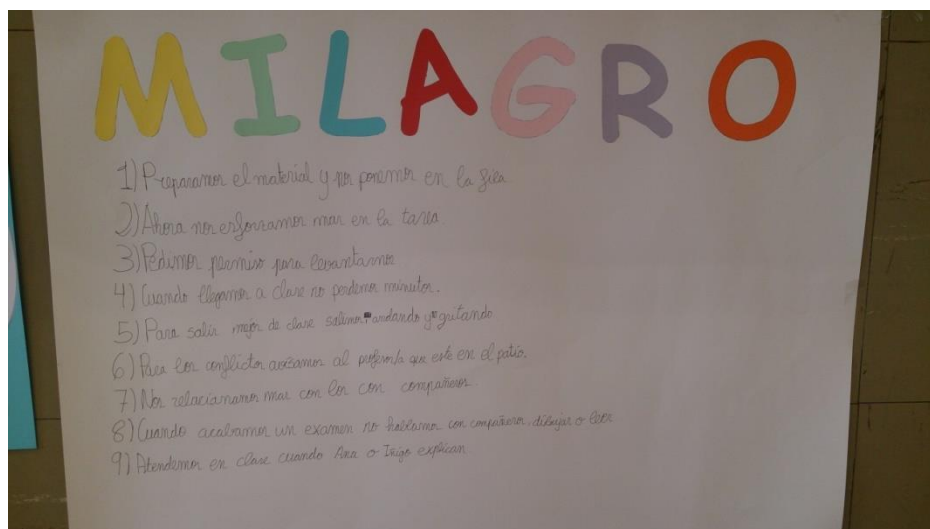 MILAGRO
1) Preparamos el material y nos ponemos en la fila.
2) Ahora nos esforzamos mas en la tarea.
3) Pedimos permiso para levantarnos
4) Cuando llegamos a clase no perdemos minutos.
5) Para salir mejor de clase salimos andando y gritando
6) Para los conflictos avisamos al profesor/a que este en el patio.
7) Nos relacionamos mas con los con compañeros.
8) Cuando acabamos un examen no hablamos con compañeros, dibujar o leer
9) Atendemos en clase cuando Ana o Iñigo explican